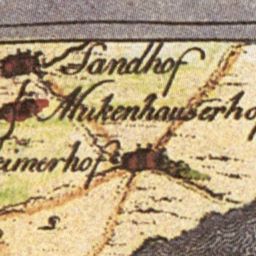 Sandhof
Mukenhauserho
eimerhof